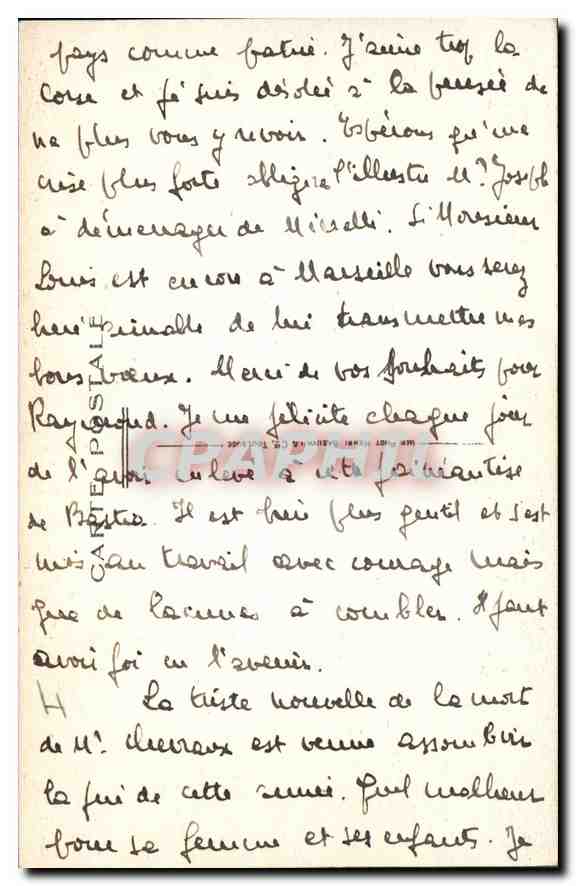 pays comme patrie. J'aime trop la
Corse et je suis désolée à la pensée de
ne plus vous y revoir. Espérons qu'une
crise plus forte obligera l'illustre Mr. Joseph
à démenager de Miselli. Si Monsieur
Louis est encore à Marseille vous serez
bien aimable de lui transmettre mes
bons voeux. Merci de vos souhaits pour
Raymond. Je me félicite chaque jour
de l'avoir enlevé à cette fainéantise
de Bastia. Il est bien plus gentil et s'est
mis au travail avec courage mais
que de lacunes à combler. Il faut
avoir foi en l'avenir.
4 La triste nouvelle de la mort
de Mr. Chevraux est venue assombrir
la fin de cette année. Quel malheur
pour sa femme et ses enfants. Je
CARTE POSTALE
CPAPHIL